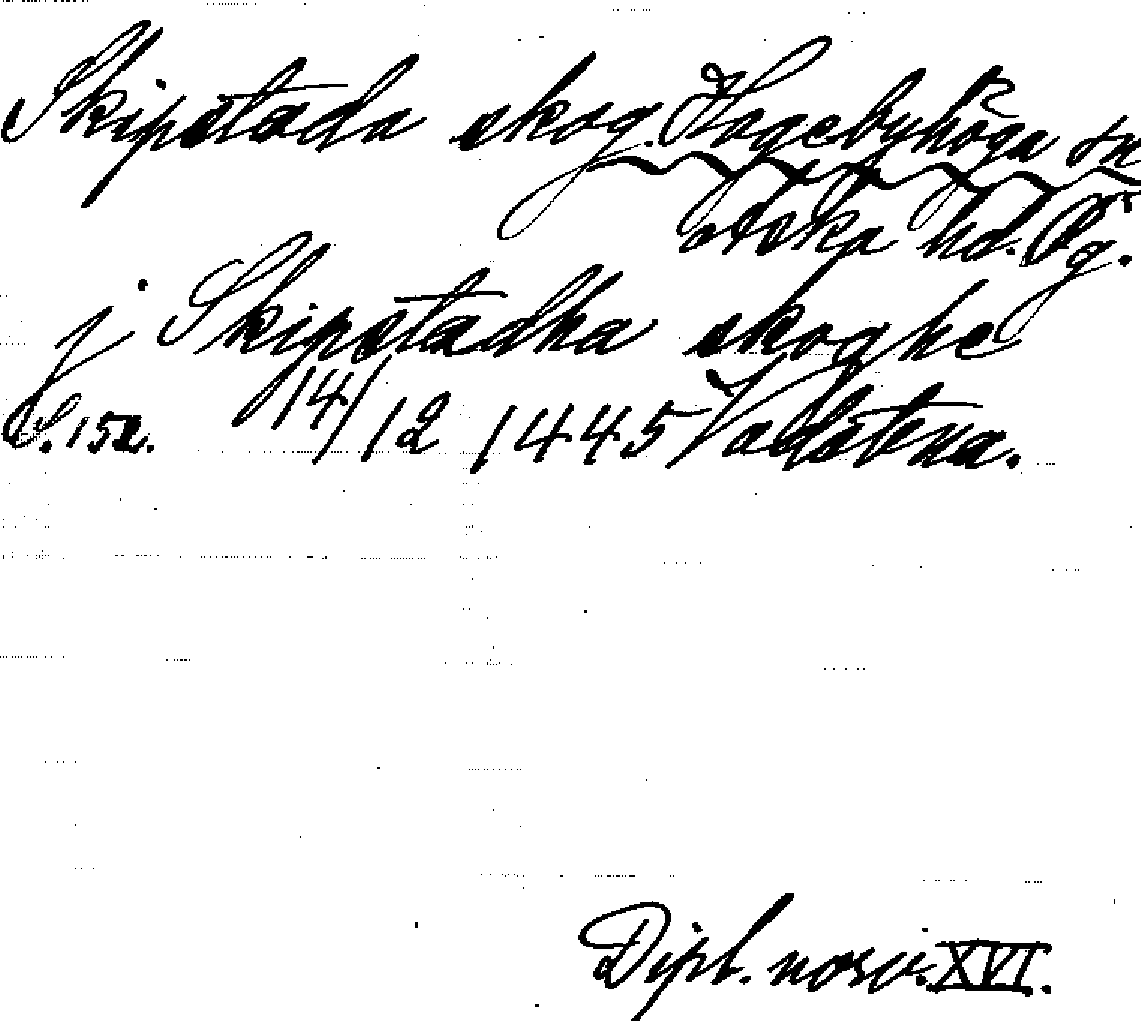 Skipstada skog. Hagebyhöga sn
Aska hd. Ög.
j Skipstadha skoghe
S. 152. 14/12 1445 Vadstena.
Dipl. norv. XVI.